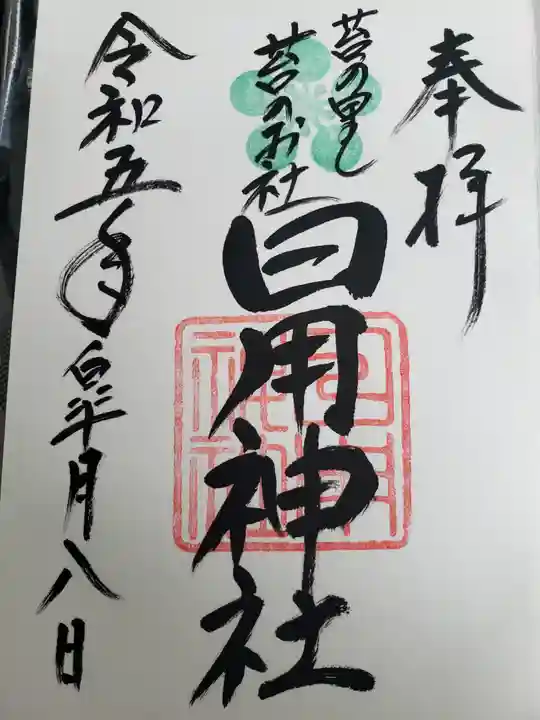 奉拝
苔の里
苔のお社
日用神社
日用神社
令和五年皐月八日